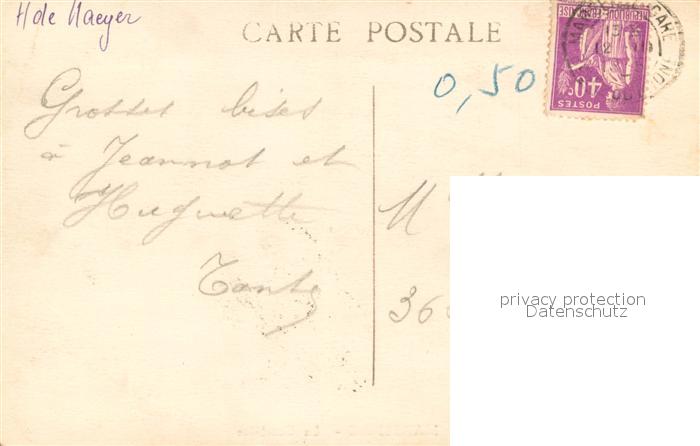 H de Maeyer
CARTE POSTALE
0,50
REPUBLIQUE FRANCAISE
POSTES 40c
Grosses bises
à Jeannot et
Huguette
Tante
M
36
privacy protection
Datenschutz